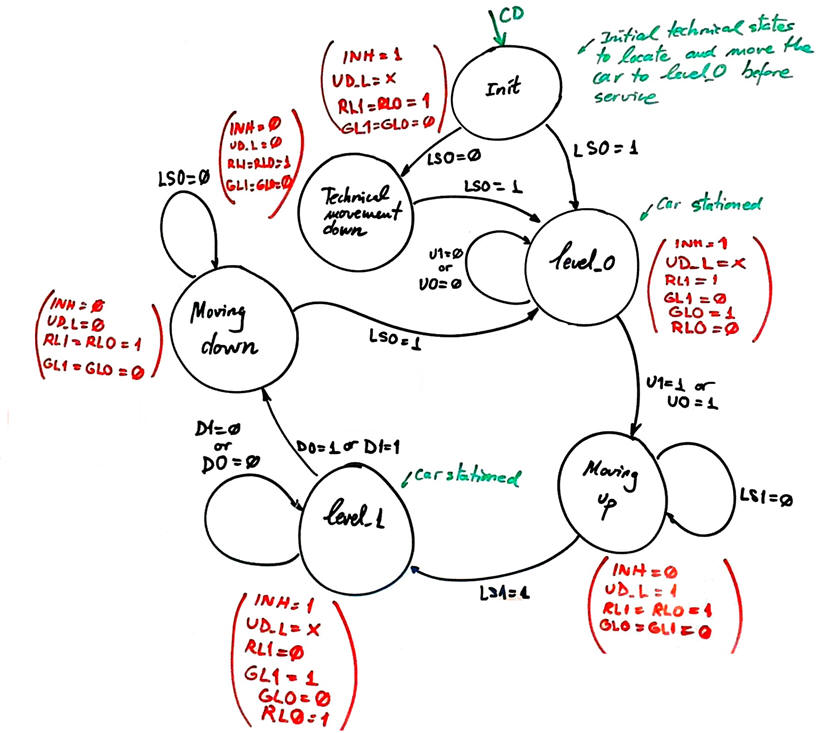 CD
Initial technical states
to locate and move the
car to level_0 before
service
INH = 1
UD_L = X
RL1 = RL0 = 1
GL1 = GL0 = Ø
Init
LS0 = Ø
LS0 = 1
INH = Ø
UD_L = Ø
RL1 = RL0 = 1
GL1 = GL0 = Ø
Technical
movement
down
LS0 = 1
LS0 = Ø
Car stationed
level_0
U1 = Ø
or
U0 = Ø
INH = 1
UD_L = X
RL1 = 1
GL1 = Ø
GL0 = 1
RL0 = Ø
Moving
down
INH = Ø
UD_L = Ø
RL1 = RL0 = 1
GL1 = GL0 = Ø
LS0 = 1
U1 = 1 or
U0 = 1
D1 = Ø
or
D0 = Ø
D0 = 1 or D1 = 1
Car stationed
level_1
Moving
up
LS1 = Ø
LS1 = 1
INH = Ø
UD_L = 1
RL1 = RL0 = 1
GL0 = GL1 = Ø
INH = 1
UD_L = X
RL1 = Ø
GL1 = 1
GL0 = Ø
RLØ = 1